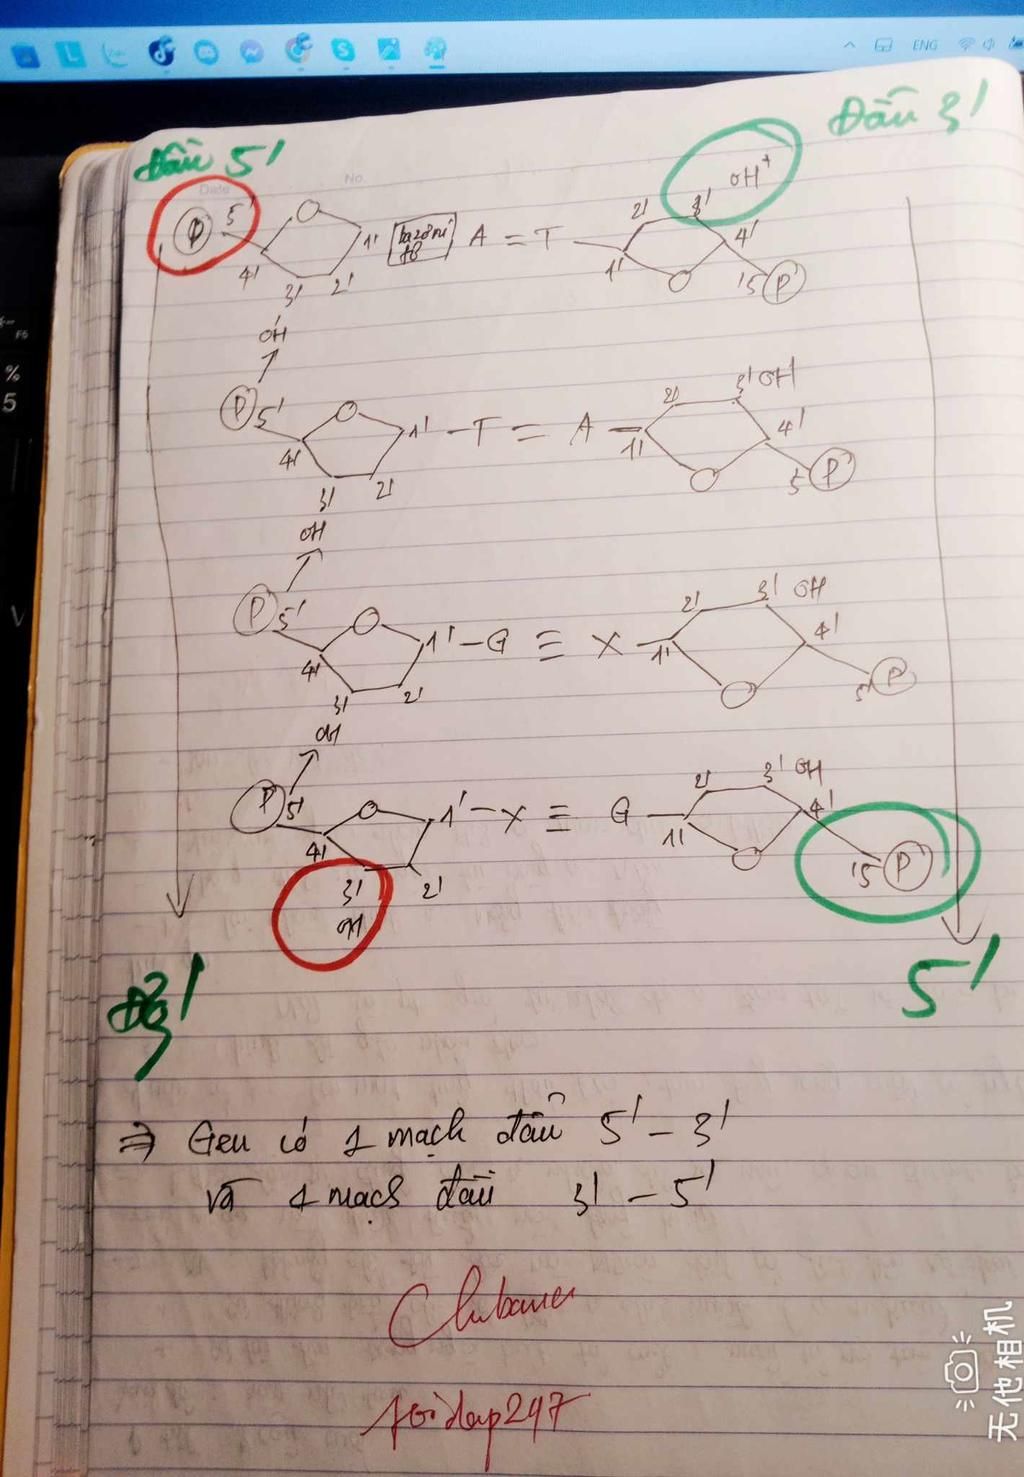 ENG
Đầu 5'
Đầu 3'
Date
No.
P 5' 1' bazơ ni tơ A = T 2' 3' OH⁺ 4'
4' 3' 2' 1' 5' P
OH
P 5' 1' - T = A 1' 2' 3' OH 4'
4' 3' 2' 5' P
OH
P 5' 1' - G ≡ X 1' 2' 3' OH 4'
4' 3' 2' 5' P
OH
P 5' 1' - X ≡ G 1' 2' 3' OH 4'
4' 3' 2' 5' P
OH
3'
5'
⇒ Gen có 1 mạch đầu 5' - 3'
và 1 mạch đầu 3' - 5'
hoidap247
无他相机